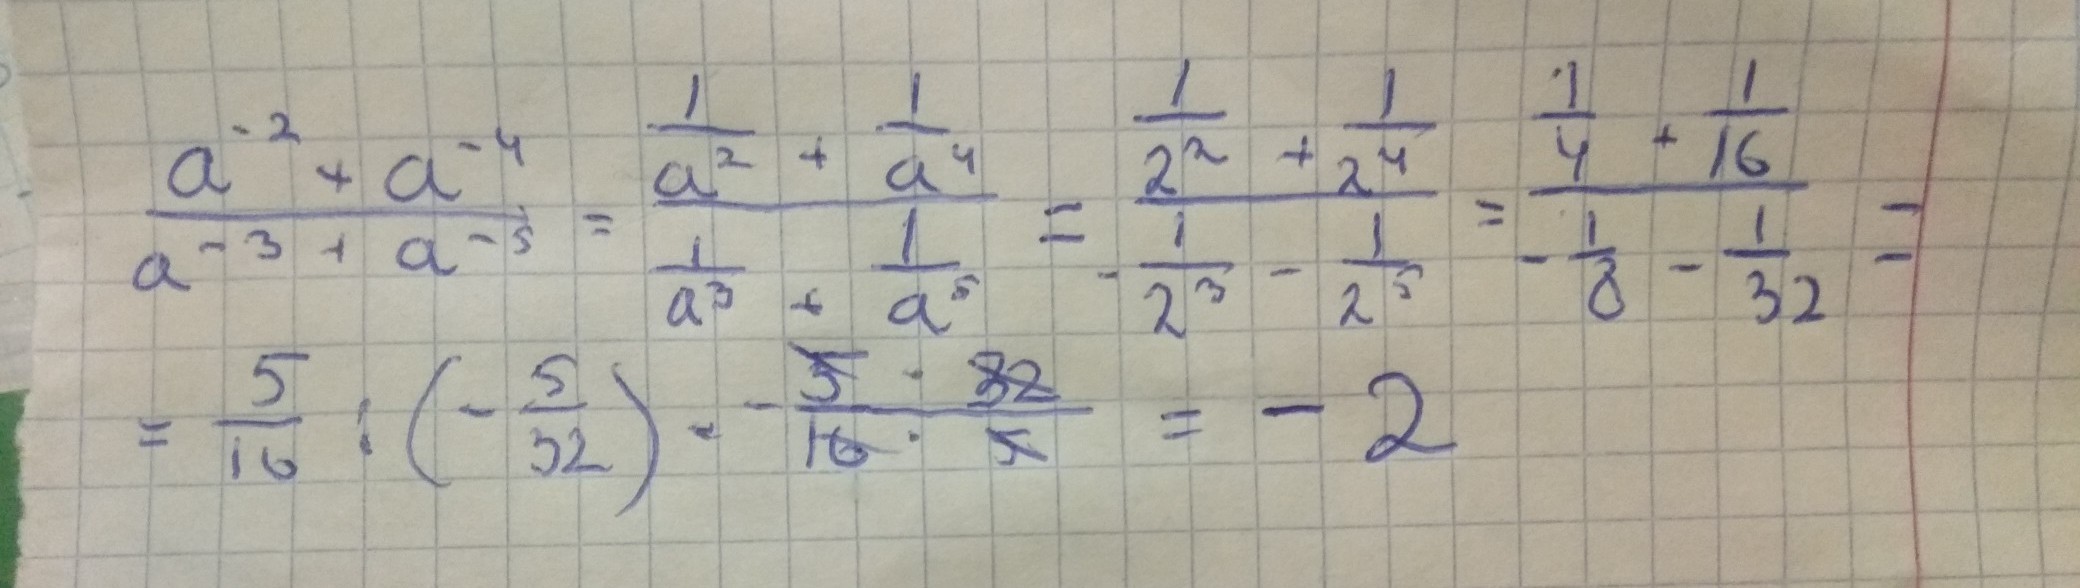 \frac{a^{-2} + a^{-4}}{a^{-3} + a^{-5}} = \frac{\frac{1}{a^2} + \frac{1}{a^4}}{\frac{1}{a^3} + \frac{1}{a^5}} = \frac{\frac{1}{2^2} + \frac{1}{2^4}}{-\frac{1}{2^3} - \frac{1}{2^5}} = \frac{\frac{1}{4} + \frac{1}{16}}{-\frac{1}{8} - \frac{1}{32}} =
= \frac{5}{16} : \left(-\frac{5}{32}\right) = -\frac{5 \cdot 32}{16 \cdot 5} = -2